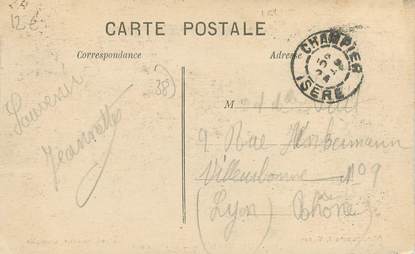 12 €
CARTE POSTALE
Correspondance
Adresse
CHAMPIER
ISERE
38)
Souvenir
Jeannette
M
9 Rue
Villeurbanne N° 9
(Lyon) Rhône